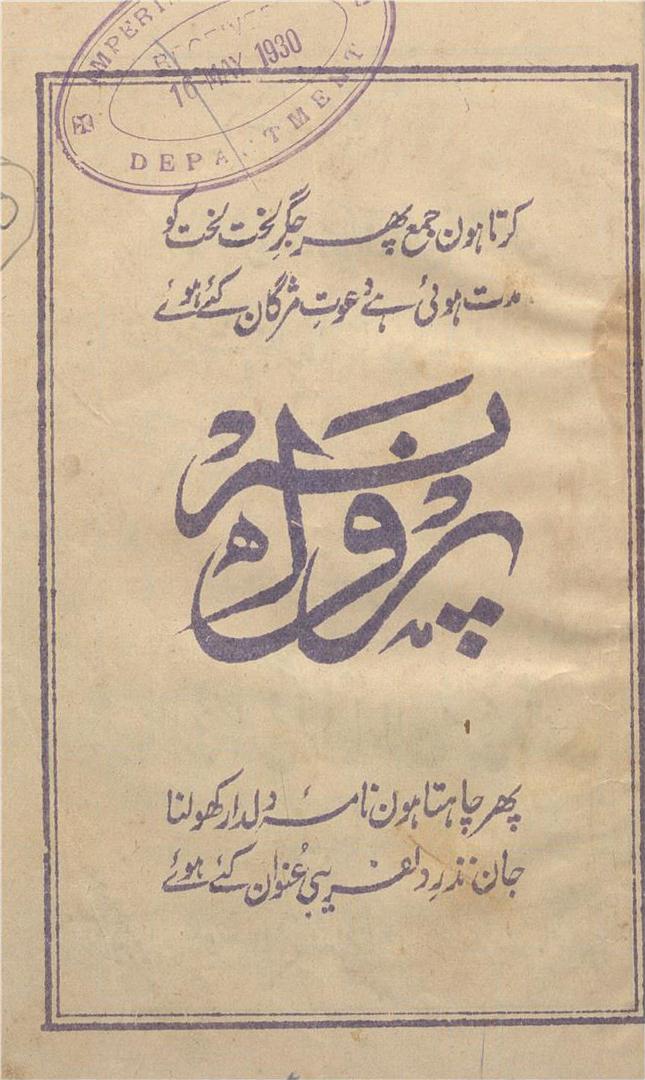 IMPERI
RECEIVED
16 MAY 1930
DEPARTMENT
کرتا ہون جمع پھر جگرِ لخت لخت کو
مدت ہوئی ہے دعوتِ مژگان کئے ہوئے
پھر چاہتا ہون نامۂ دلدار کھولنا
جان نذرِ دلفریبیِ عُنوان کئے ہوئے